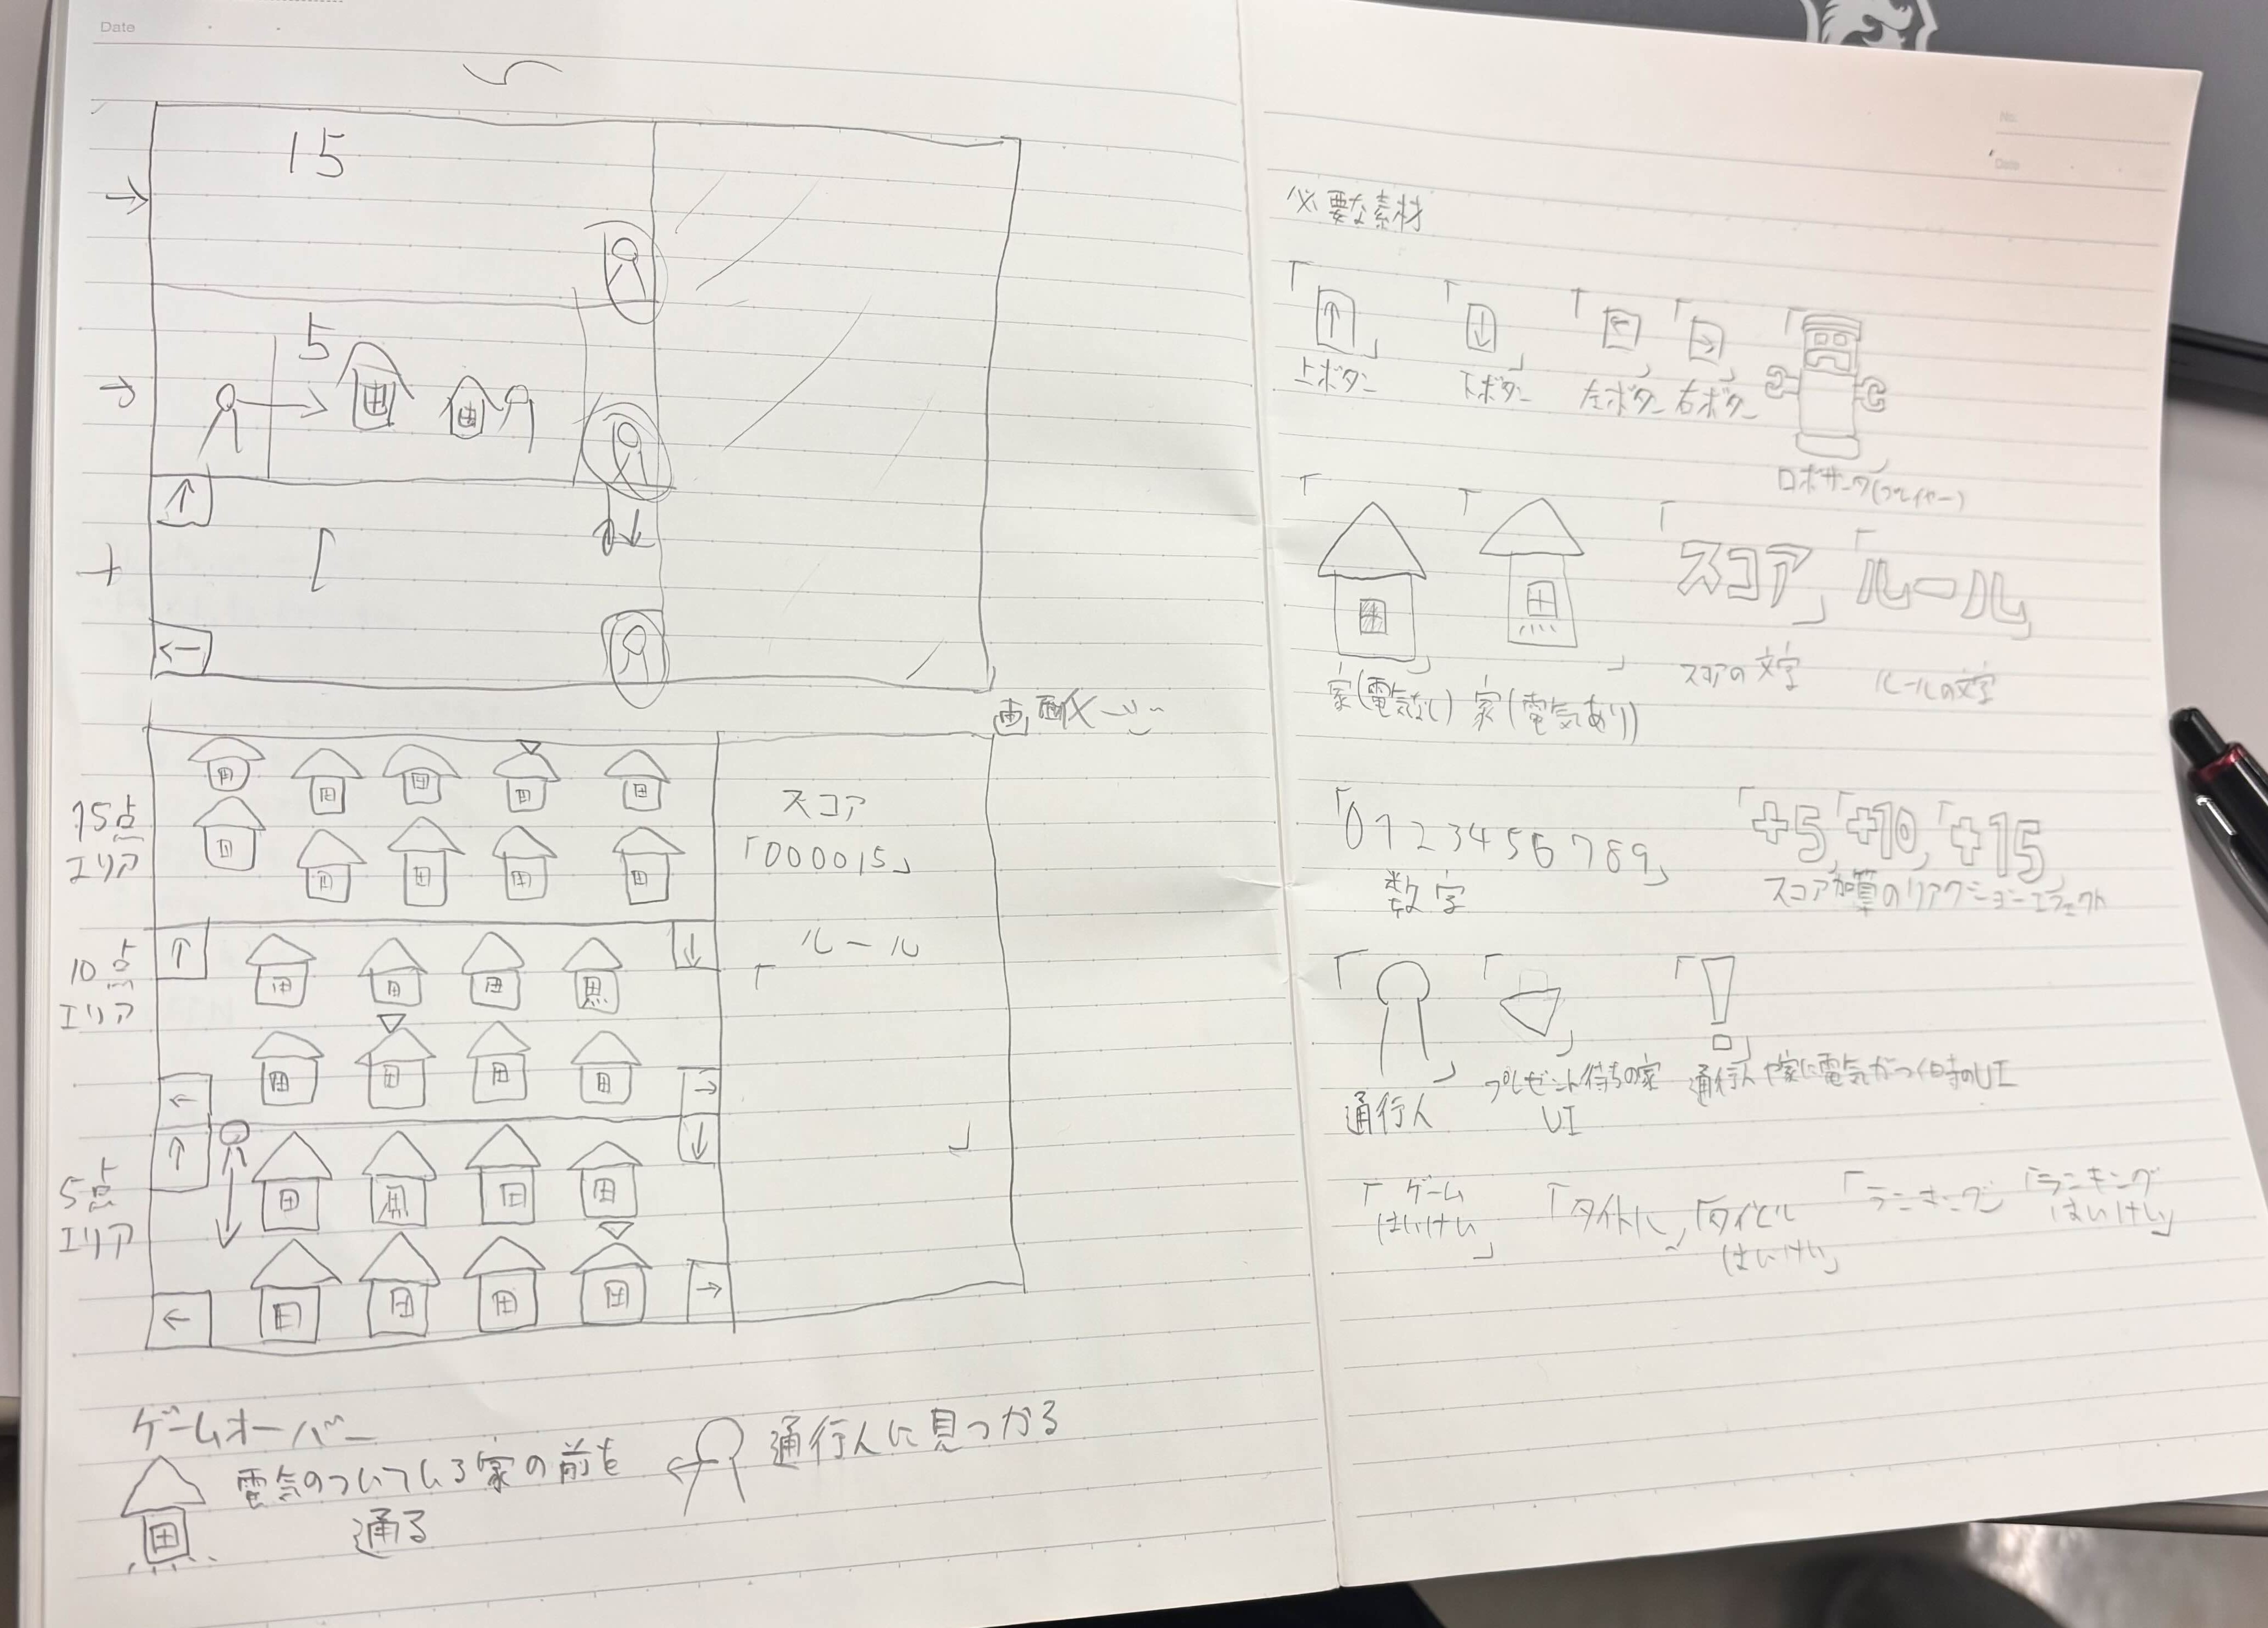 Date
15
5
画面イメージ
15点
エリア
スコア
「000015」
10点
エリア
ルール
「
」
5点
エリア
ゲームオーバー
電気のついている家の前を
通る
通行人に見つかる
No.
Date
必要な素材
「↑」 「↓」 「←」 「→」 「 」
上ボタン 下ボタン 左ボタン 右ボタン
ロボサンタ(プレイヤー)
「スコア」 「ルール」
家(電気なし) 家(電気あり) スコアの文字 ルールの文字
「0123456789」 「+5」 「+10」 「+15」
数字 スコア加算のリアクションエフェクト
「!」
通行人 プレゼント待ちの家
UI
通行人や家に電気がつく時のUI
「ゲーム
はいけい」
「タイトル」 「タイトル
はいけい」
「ランキング」 「ランキング
はいけい」